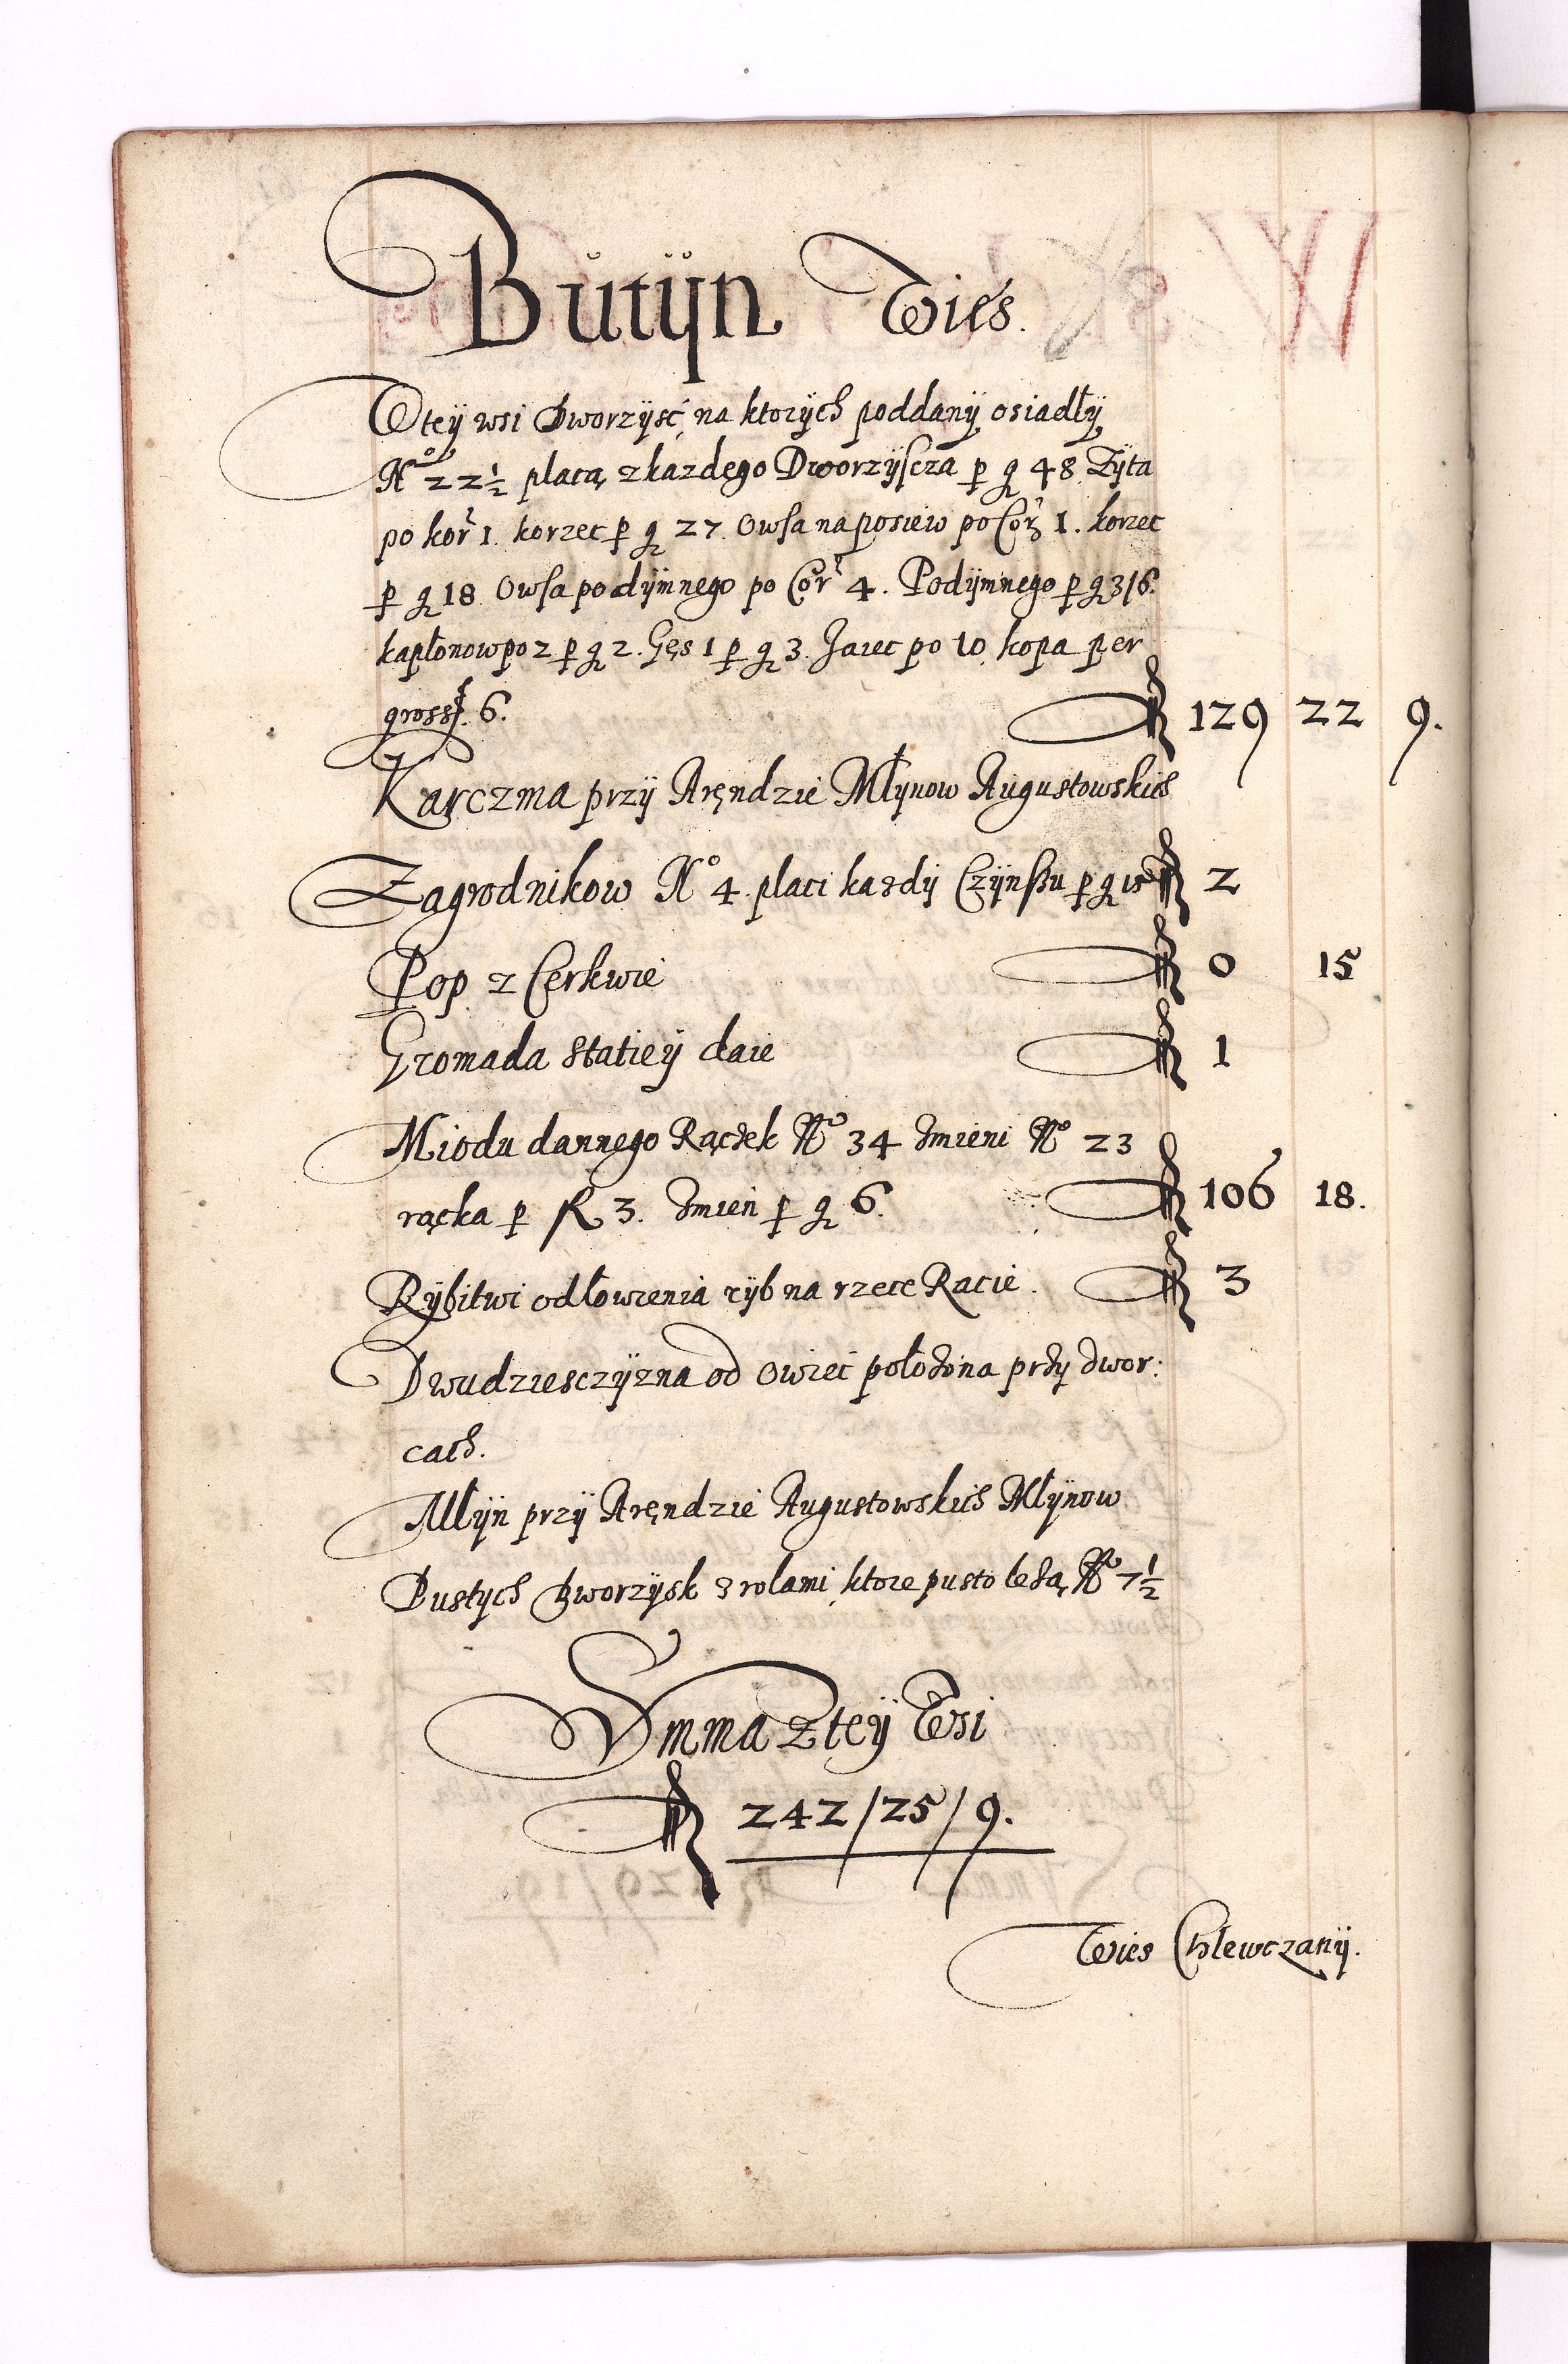 Butÿn Wieś.
Wteÿ wsi Dworzÿść na ktorÿch poddanÿ osiadłÿ
No 22½ płacą z kazdego Dworzÿscza p g 48. Zÿta
po kor 1. korzec p g 27. Owsa na posiew po Cor 1. korzec
p g 18. Owsa podÿmnego po Cor 4. Podÿmnego p g 3/6.
kapłonow po 2 p g 2. Gęs 1 p g 3. Jaiec po 10. kopa per
gross. 6. R 129 22 9.
Karczma przÿ Aręndzie Młÿnow Augustowskich
Zagrodnikow No 4. płaci kazdÿ Czÿnszu p g 15 R 2
Pop z Cerkwie R 0 15
Gromada statieÿ daie R 1
Miodu dannego Rączek No 34 zmieni No 23
rączka p R 3. zmień p g 6. R 106 18.
Rÿbitwi od łowienia rÿb na rzece Racie. R 3
Dwudziesczÿzna od owiec położona przÿ dwor:
cach.
Młÿn przÿ Aręndzie Augustowskich Młÿnow
Pustÿch Dworzÿsk z rolami, ktore pusto leżą No 7½
Summa z teÿ Wsi
R 242/25/9.
Wies Chlewczanÿ.